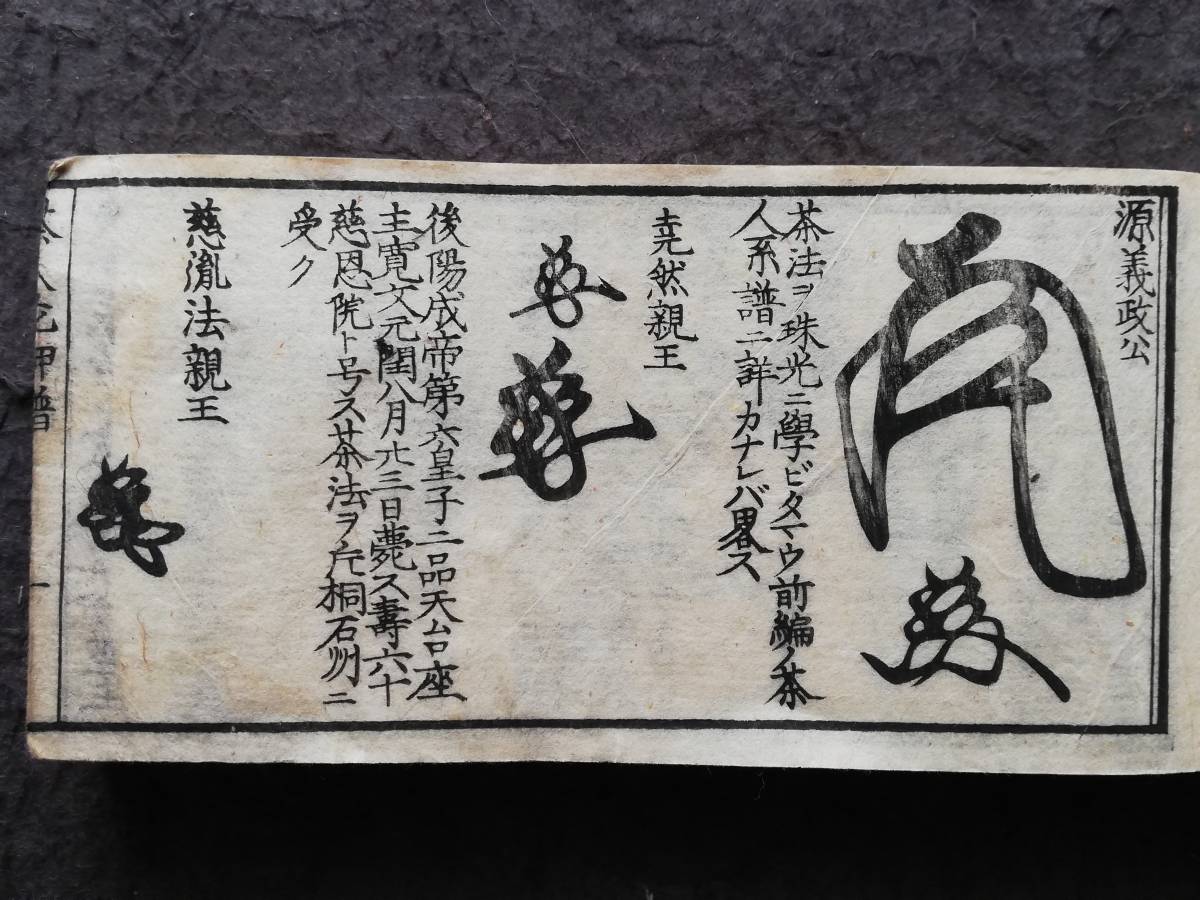 源義政公
茶法ヲ珠光ニ學ビタマウ前編ノ茶
人系譜ニ詳カナレバ畧ス
尭然親王
後陽成帝第六皇子二品天台座
主寛文元閏八月廿三日薨ス壽六十
慈恩院ト号ス茶法ヲ片桐石州ニ
受ク
慈胤法親王
茶人花押譜
一